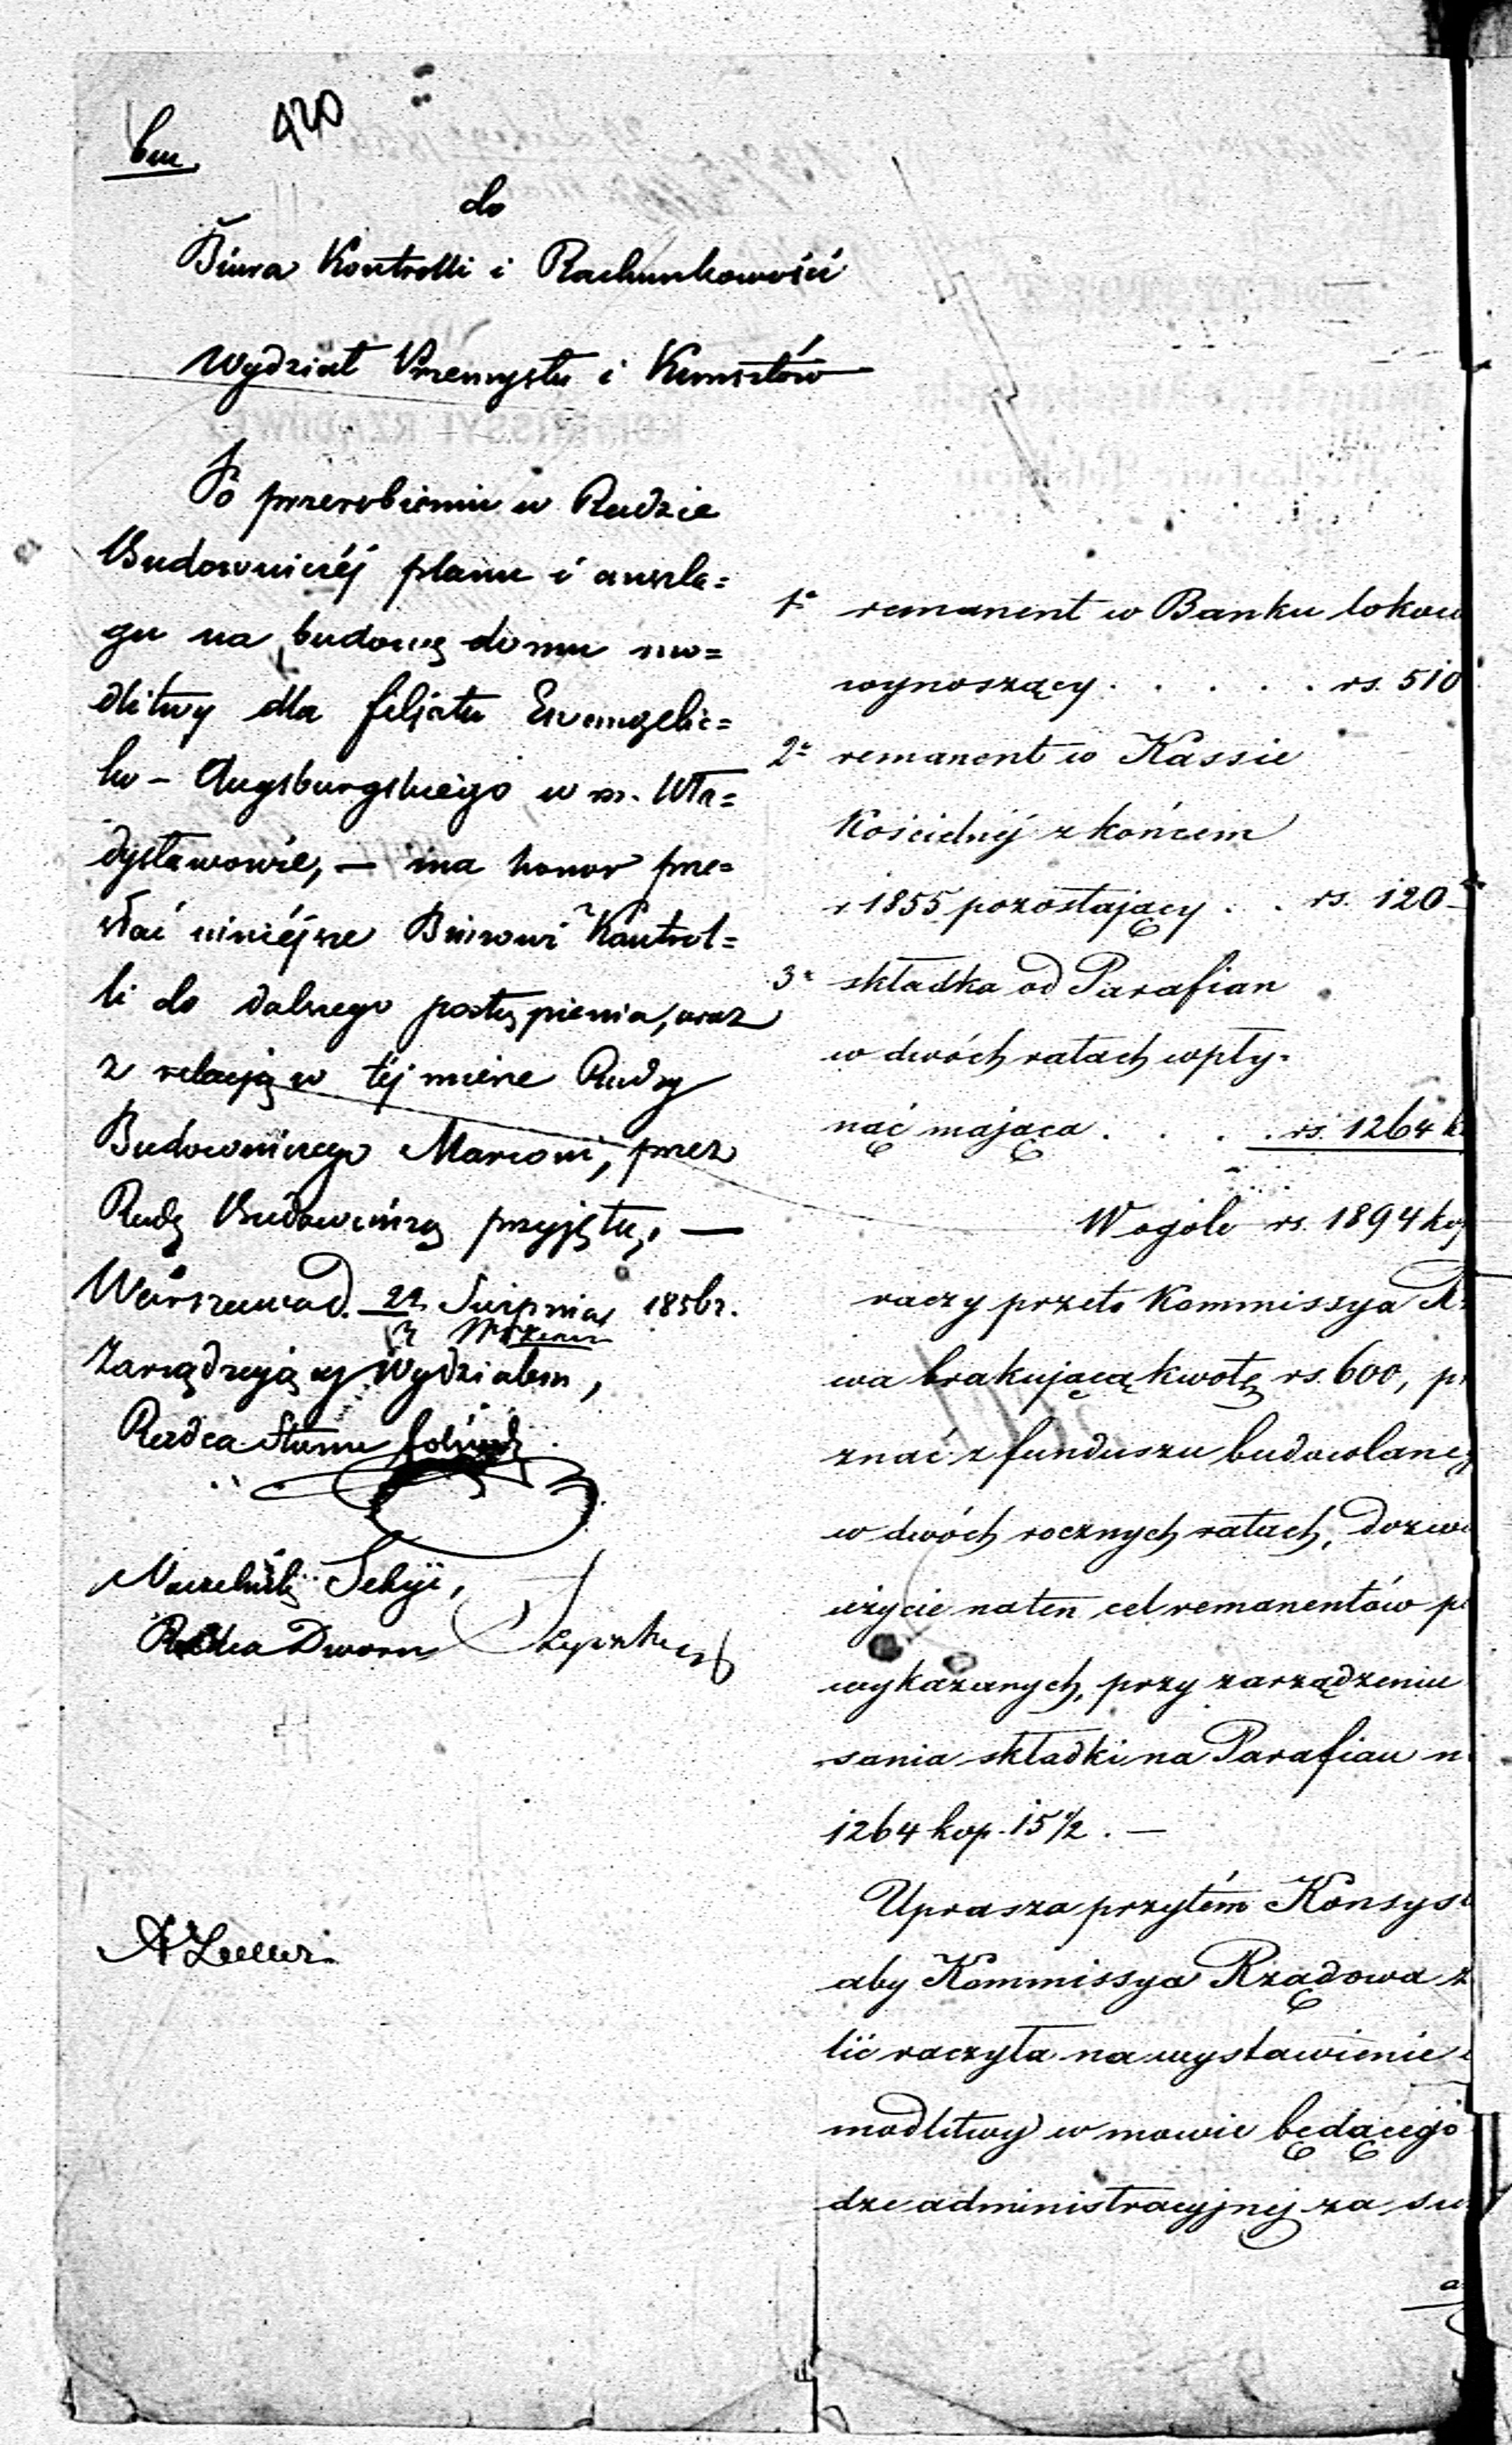 bm.
420
do
Biura Kontrolli i Rachunkowości
Wydział Przemysłu i Kunsztów
Po przerobieniu w Radzie
Budowniczéj planu i anszla=
gu na budowę domu mo=
dlitwy dla filjału Ewangelic=
ko - Augsburgskiego w m. Wła=
dysławowie, — ma honor prze=
słać niniéjsze Biurowi Kontrol=
li do dalszego postąpienia, wraz
z relacją w téj mierze Radzy
Budowniczego Marconi, przez
Radę Budowniczą przyjętą, —
Warszawa d. 22 Sierpnia 1856 r.
3 Września
Zarządzający Wydziałem,
Radca Stanu
Naczelnik Sekcji,
Radca Dworu
1° remanent w Banku lokow
wynoszący . . . . . rs. 510
2° remanent w Kassie
Kościelnéj z końcem
r. 1855 pozostający . . rs. 120
3° składka od Parafian
w dwóch ratach wpły=
nąć mająca . . . . rs. 1264 k
W ogóle rs. 1894 kop
raczy przeto Kommissya R
wa brakującą kwotę rs. 600, p
znać z funduszu budowlane
w dwóch rocznych ratach, dozwo
użycie na ten cel remanentów p
wykazanych, przy zarządzeniu
sania składki na Parafian n
1264 kop. 15 1/2. —
Uprasza przytém Konsyst
aby Kommissya Rządowa z
lić raczyła na wystawienie
modlitwy w mowie będącego
dze administracyjnej za su